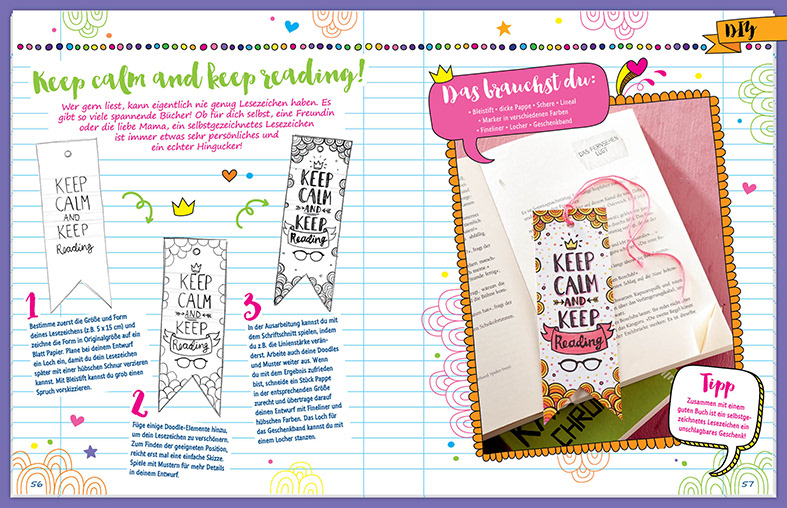 DIY
Keep calm and keep reading!
Wer gern liest, kann eigentlich nie genug Lesezeichen haben. Es
gibt so viele spannende Bücher! Ob für dich selbst, eine Freundin
oder die liebe Mama, ein selbstgezeichnetes Lesezeichen
ist immer etwas sehr persönliches und
ein echter Hingucker!
KEEP
CALM
AND
KEEP
Reading
1
Bestimme zuerst die Größe und Form
deines Lesezeichens (z.B. 5 x 15 cm) und
zeichne die Form in Originalgröße auf ein
Blatt Papier. Plane bei deinem Entwurf
ein Loch ein, damit du dein Lesezeichen
später mit einer hübschen Schnur verzieren
kannst. Mit Bleistift kannst du grob einen
Spruch vorskizzieren.
KEEP
CALM
AND
KEEP
Reading
2
Füge einige Doodle-Elemente hinzu,
um dein Lesezeichen zu verschönern.
Zum Finden der geeigneten Position,
reicht erst mal eine einfache Skizze.
Spiele mit Mustern für mehr Details
in deinem Entwurf.
KEEP
CALM
AND
KEEP
Reading
3
In der Ausarbeitung kannst du mit
dem Schriftschnitt spielen, indem
du z.B. die Linienstärke verän-
derst. Arbeite auch deine Doodles
und Muster weiter aus. Wenn
du mit dem Ergebnis zufrieden
bist, schneide ein Stück Pappe
in der entsprechenden Größe
zurecht und übertrage darauf
deinen Entwurf mit Fineliner und
hübschen Farben. Das Loch für
das Geschenkband kannst du mit
einem Locher stanzen.
56
Das brauchst du:
• Bleistift • dicke Pappe • Schere • Lineal
• Marker in verschiedenen Farben
• Fineliner • Locher • Geschenkband
DAS FERNSEHEN
KEEP
CALM
AND
KEEP
Reading
CHRO
Tipp
Zusammen mit einem
guten Buch ist ein selbstge-
zeichnetes Lesezeichen ein
unschlagbares Geschenk!
57